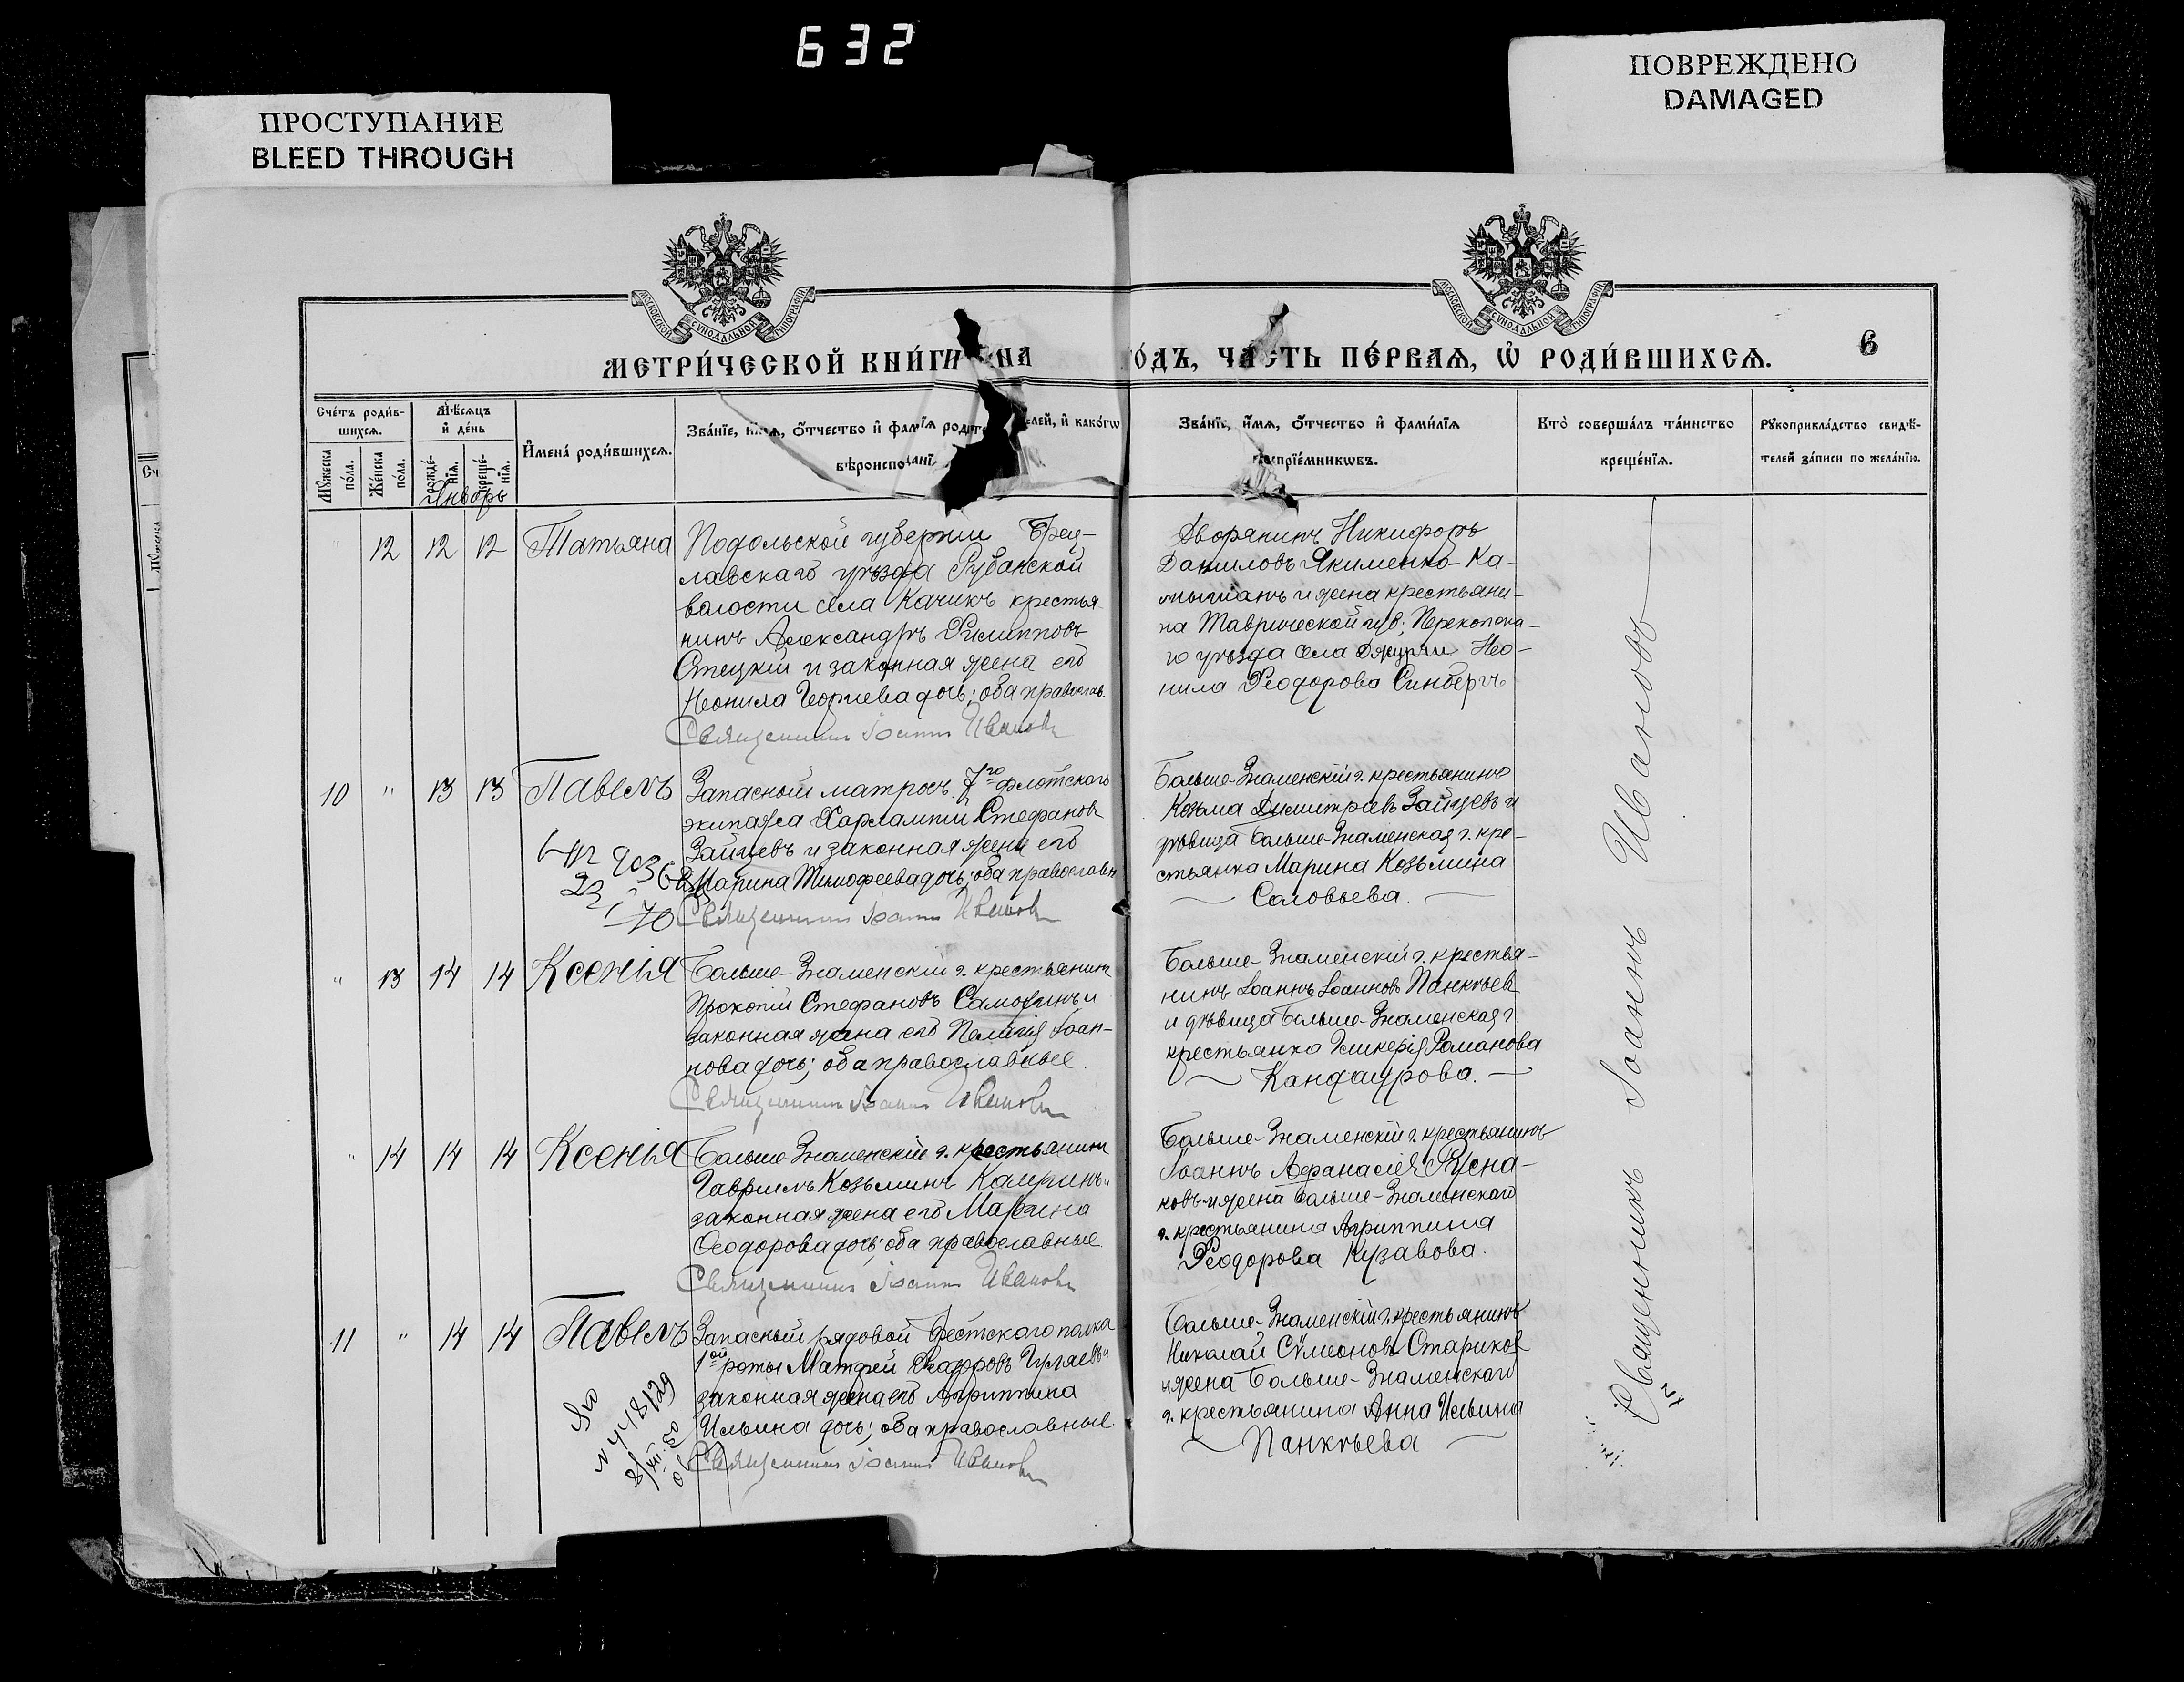 632
ПРОСТУПАНИЕ
BLEED THROUGH
ПОВРЕЖДЕНО
DAMAGED
МОСКОВСКОЙ СѴНОДАЛЬНОЙ ТИПОГРАФІИ
МОСКОВСКОЙ СѴНОДАЛЬНОЙ ТИПОГРАФІИ
МЕТРИ́ЧЕСКОЙ КНИ́ГИ НА
О́ДЪ, ЧА́СТЬ ПЕ́РВАѦ, Ѡ҆ РОДИ́ВШИХСѦ.
6
Сче́тъ роди́в-
шихсѧ.
Мꙋ́жеска по́ла.
Же́нска по́ла.
Мѣ́сѧцъ
и҆ де́нь
рожде́-
нїѧ.
креще́-
нїѧ.
Январь
И҆мена̀ роди́вшихсѧ.
Зва́нїе, и҆́мѧ, ѻ҆́тчество и҆ фами́лїѧ роди́телей, и҆ како́гѡ
вѣроисповѣданї
Зва́нїе, и҆́мѧ, ѻ҆́тчество и҆ фами́лїѧ
воспрїе́мникѡвъ.
Кто̀ соверша́лъ та́инство
креще́нїѧ.
Рꙋкоприкла́дство свидѣ́-
телей за́писи по жела́нїю.
" 12 12 12 Татьяна
Подольской губернии Брац-
лавскаго уѣзда Рубанской
волости села Качикъ крестья
нинъ Александръ Филипповъ
Стецкій и законная жена его
Неонила Георгіева дочь; оба православ.
Священникъ Іоаннъ Ивановъ
Дворянинъ Никифоръ
Даниловъ Якименко-Ка-
мышанъ и жена крестьяни-
на Таврической губ; Перекопска-
го уѣзда села Джурчи Нео-
нила Ѳеодорова Синбергъ
10 " 13 13 Павелъ
Запасный матросъ 7го флотскаго
экипажа Харлампій Стефановъ
Зайцевъ и законная жена его
Марина Тимофеева дочь; оба православн
Священникъ Іоаннъ Ивановъ
Больше-Знаменскій г. крестьянинъ
Козьма Димитріевъ Зайцевъ и
дѣвица Больше-Знаменская г. кре-
стьянка Марина Козьмина
Соловьева.
" 13 14 14 Ксенія
Больше-Знаменскій г. крестьянинъ
Прокопій Стефановъ Самохинъ и
законная жена его Пелагія Іоан-
нова дочь; оба православные.
Священникъ Іоаннъ Ивановъ
Больше-Знаменскій г. крестья-
нинъ Іоаннъ Іоанновъ Панкѣевъ
и дѣвица Больше-Знаменская г.
крестьянка Гликерія Романова
Кандаурова.
" 14 14 14 Ксенія
Больше-Знаменскій г. крестьянинъ
Гавріилъ Козьминъ
законная жена его
Ѳеодорова дочь; оба православные.
Священникъ Іоаннъ Ивановъ
Больше-Знаменскій г. крестьянинъ
Іоаннъ Афанасіев Русна-
ковъ и жена Больше-Знаменскаго
г. крестьянина Агриппина
Ѳеодорова Кузавова.
11 " 14 14 Павелъ
Запасный рядовой Брестскаго полка
1ой роты Матфей Ѳеодоровъ
законная жена его Агриппина
Ильина дочь; оба православные.
Священникъ Іоаннъ Ивановъ
Больше-Знаменскій г. крестьянинъ
Николай Сѵмеоновъ Стариков
и жена Больше-Знаменскаго
г. крестьянина Анна Ильина
Панкѣева
Священникъ Іоаннъ Ивановъ